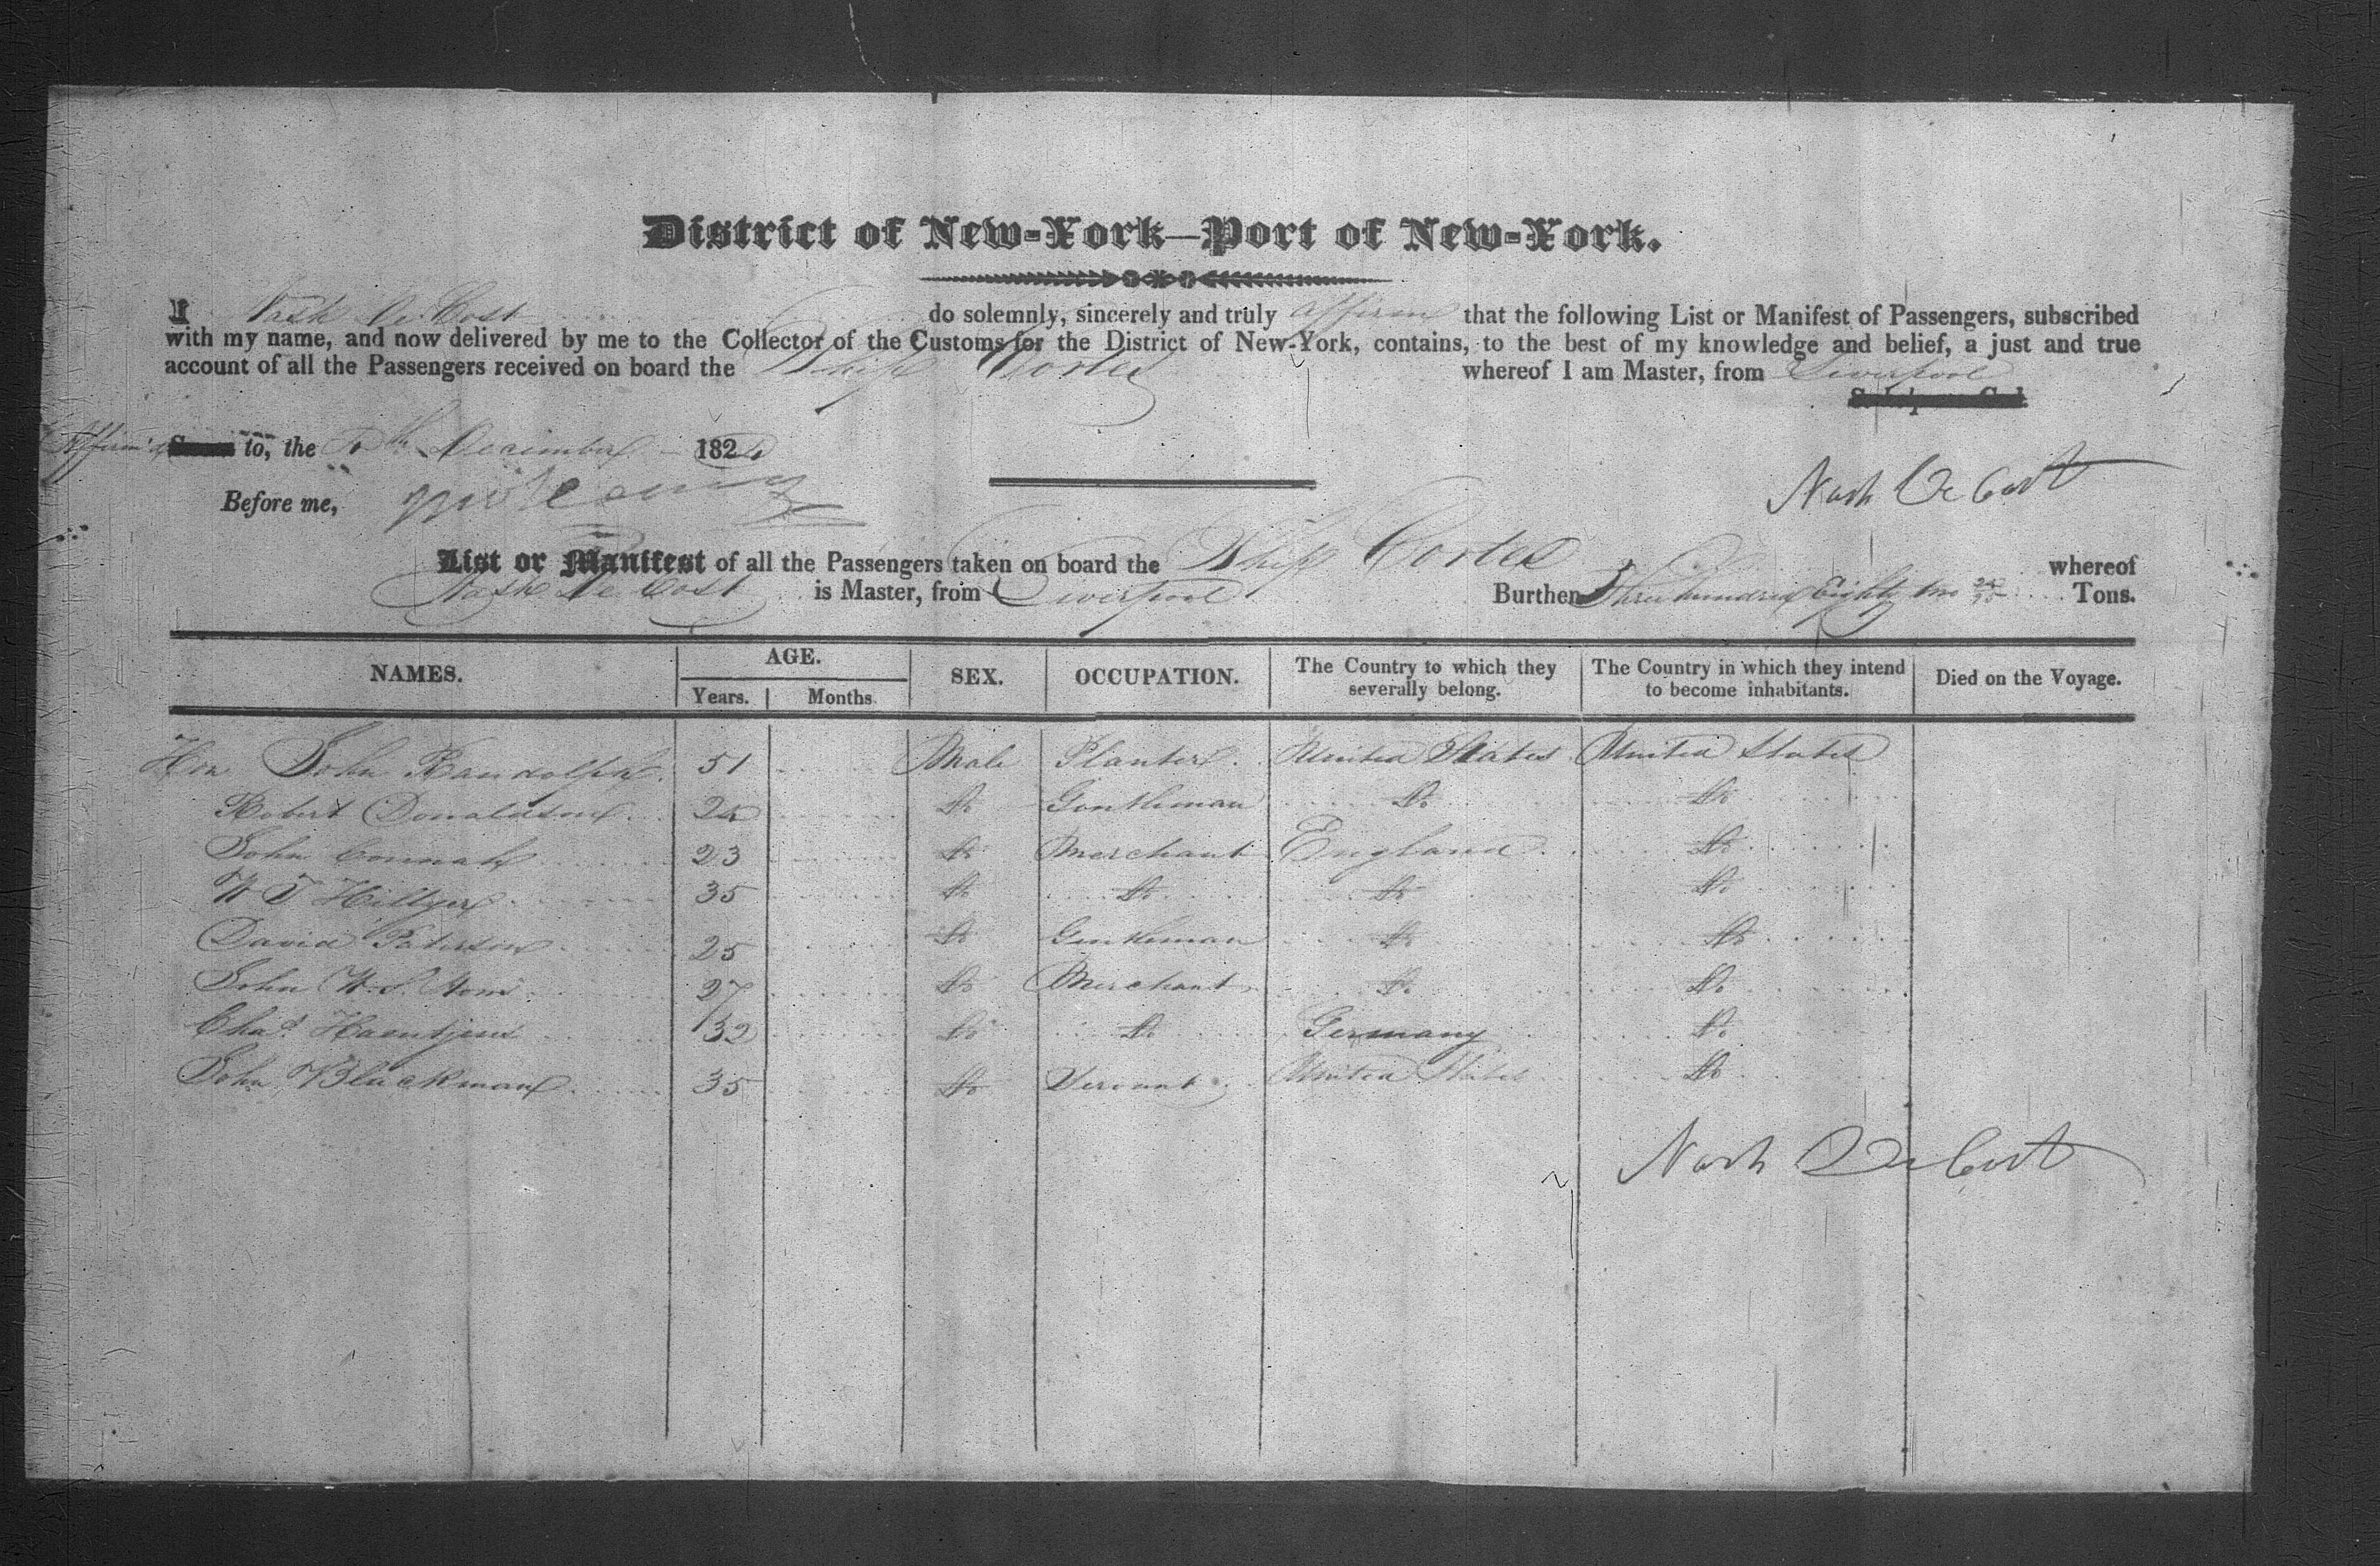 District of New-York—Port of New-York.
I Nash De Cost do solemnly, sincerely and truly affirm that the following List or Manifest of Passengers, subscribed
with my name, and now delivered by me to the Collector of the Customs for the District of New-York, contains, to the best of my knowledge and belief, a just and true
account of all the Passengers received on board the Ship Cortes whereof I am Master, from Liverpool
Affirm'd to, the December 182
Before me,
Nash De Cost
List or Manifest of all the Passengers taken on board the Ship Cortes whereof
Nash De Cost is Master, from Liverpool Burthen Three hundred Eighty two Tons.
NAMES. AGE. Years. Months. SEX. OCCUPATION. The Country to which they severally belong. The Country in which they intend to become inhabitants. Died on the Voyage.
Hon John Randolph 51 Male Planter United States United States
Robert Donaldson 24 Do Gentleman Do Do
John Connah 23 Do Merchant England Do
W T Hillyer 35 Do Do Do Do
David Paterson 25 Do Gentleman Do Do
John W. S. 27 Do Merchant Do Do
Chas. Haentjens 32 Do Do Germany Do
John Blackman 35 Do Servant United States Do
Nash De Cost